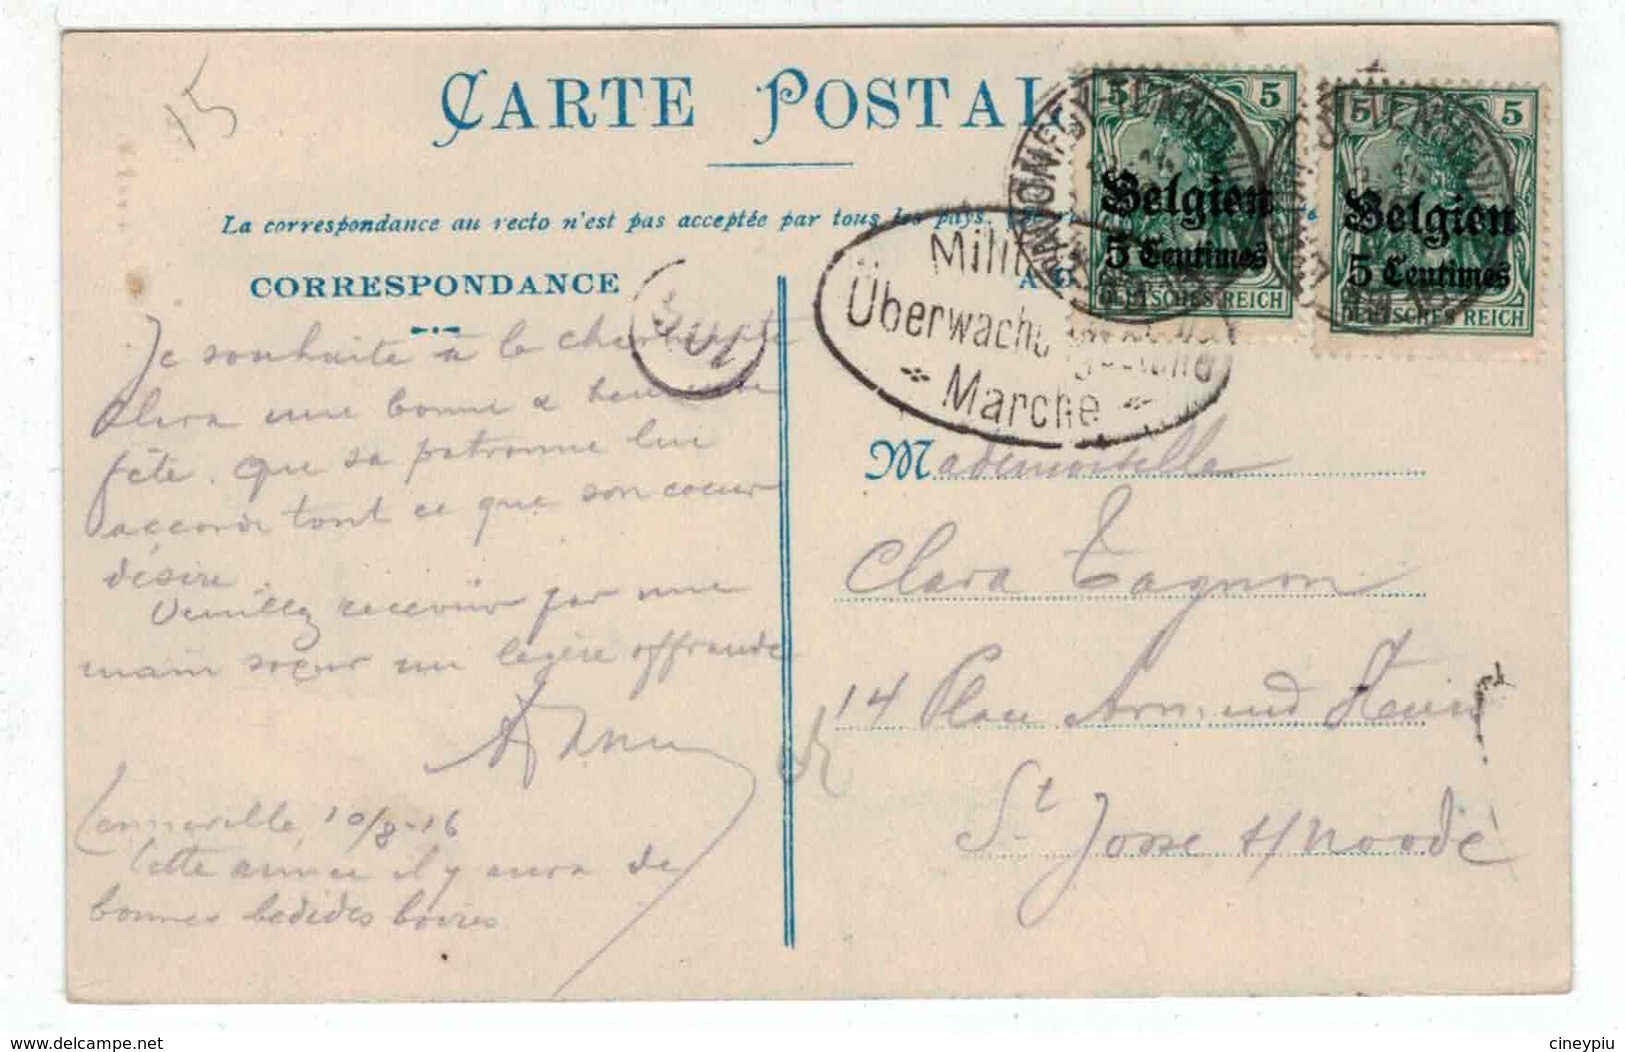 15
CARTE POSTAL
La correspondance au recto n'est pas acceptée par tous les pays.
CORRESPONDANCE
5 5
Belgien
5 Centimes
DEUTSCHES REICH
5 5
Belgien
5 Centimes
DEUTSCHES REICH
Milit
Überwachungsstelle
Marche
Je souhaite à la charmante
Clara une bonne & heureuse
fête. Que sa patronne lui
accorde tout ce que son coeur
désire.
Veuillez recevoir par une
main soeur un legère offrande
10/8-16
Cette année il y aura de
bonnes
Mademoiselle
Clara Tagnon
14 Place Armand Steurs
St Josse t/ Noode
delcampe.net
cineypiu